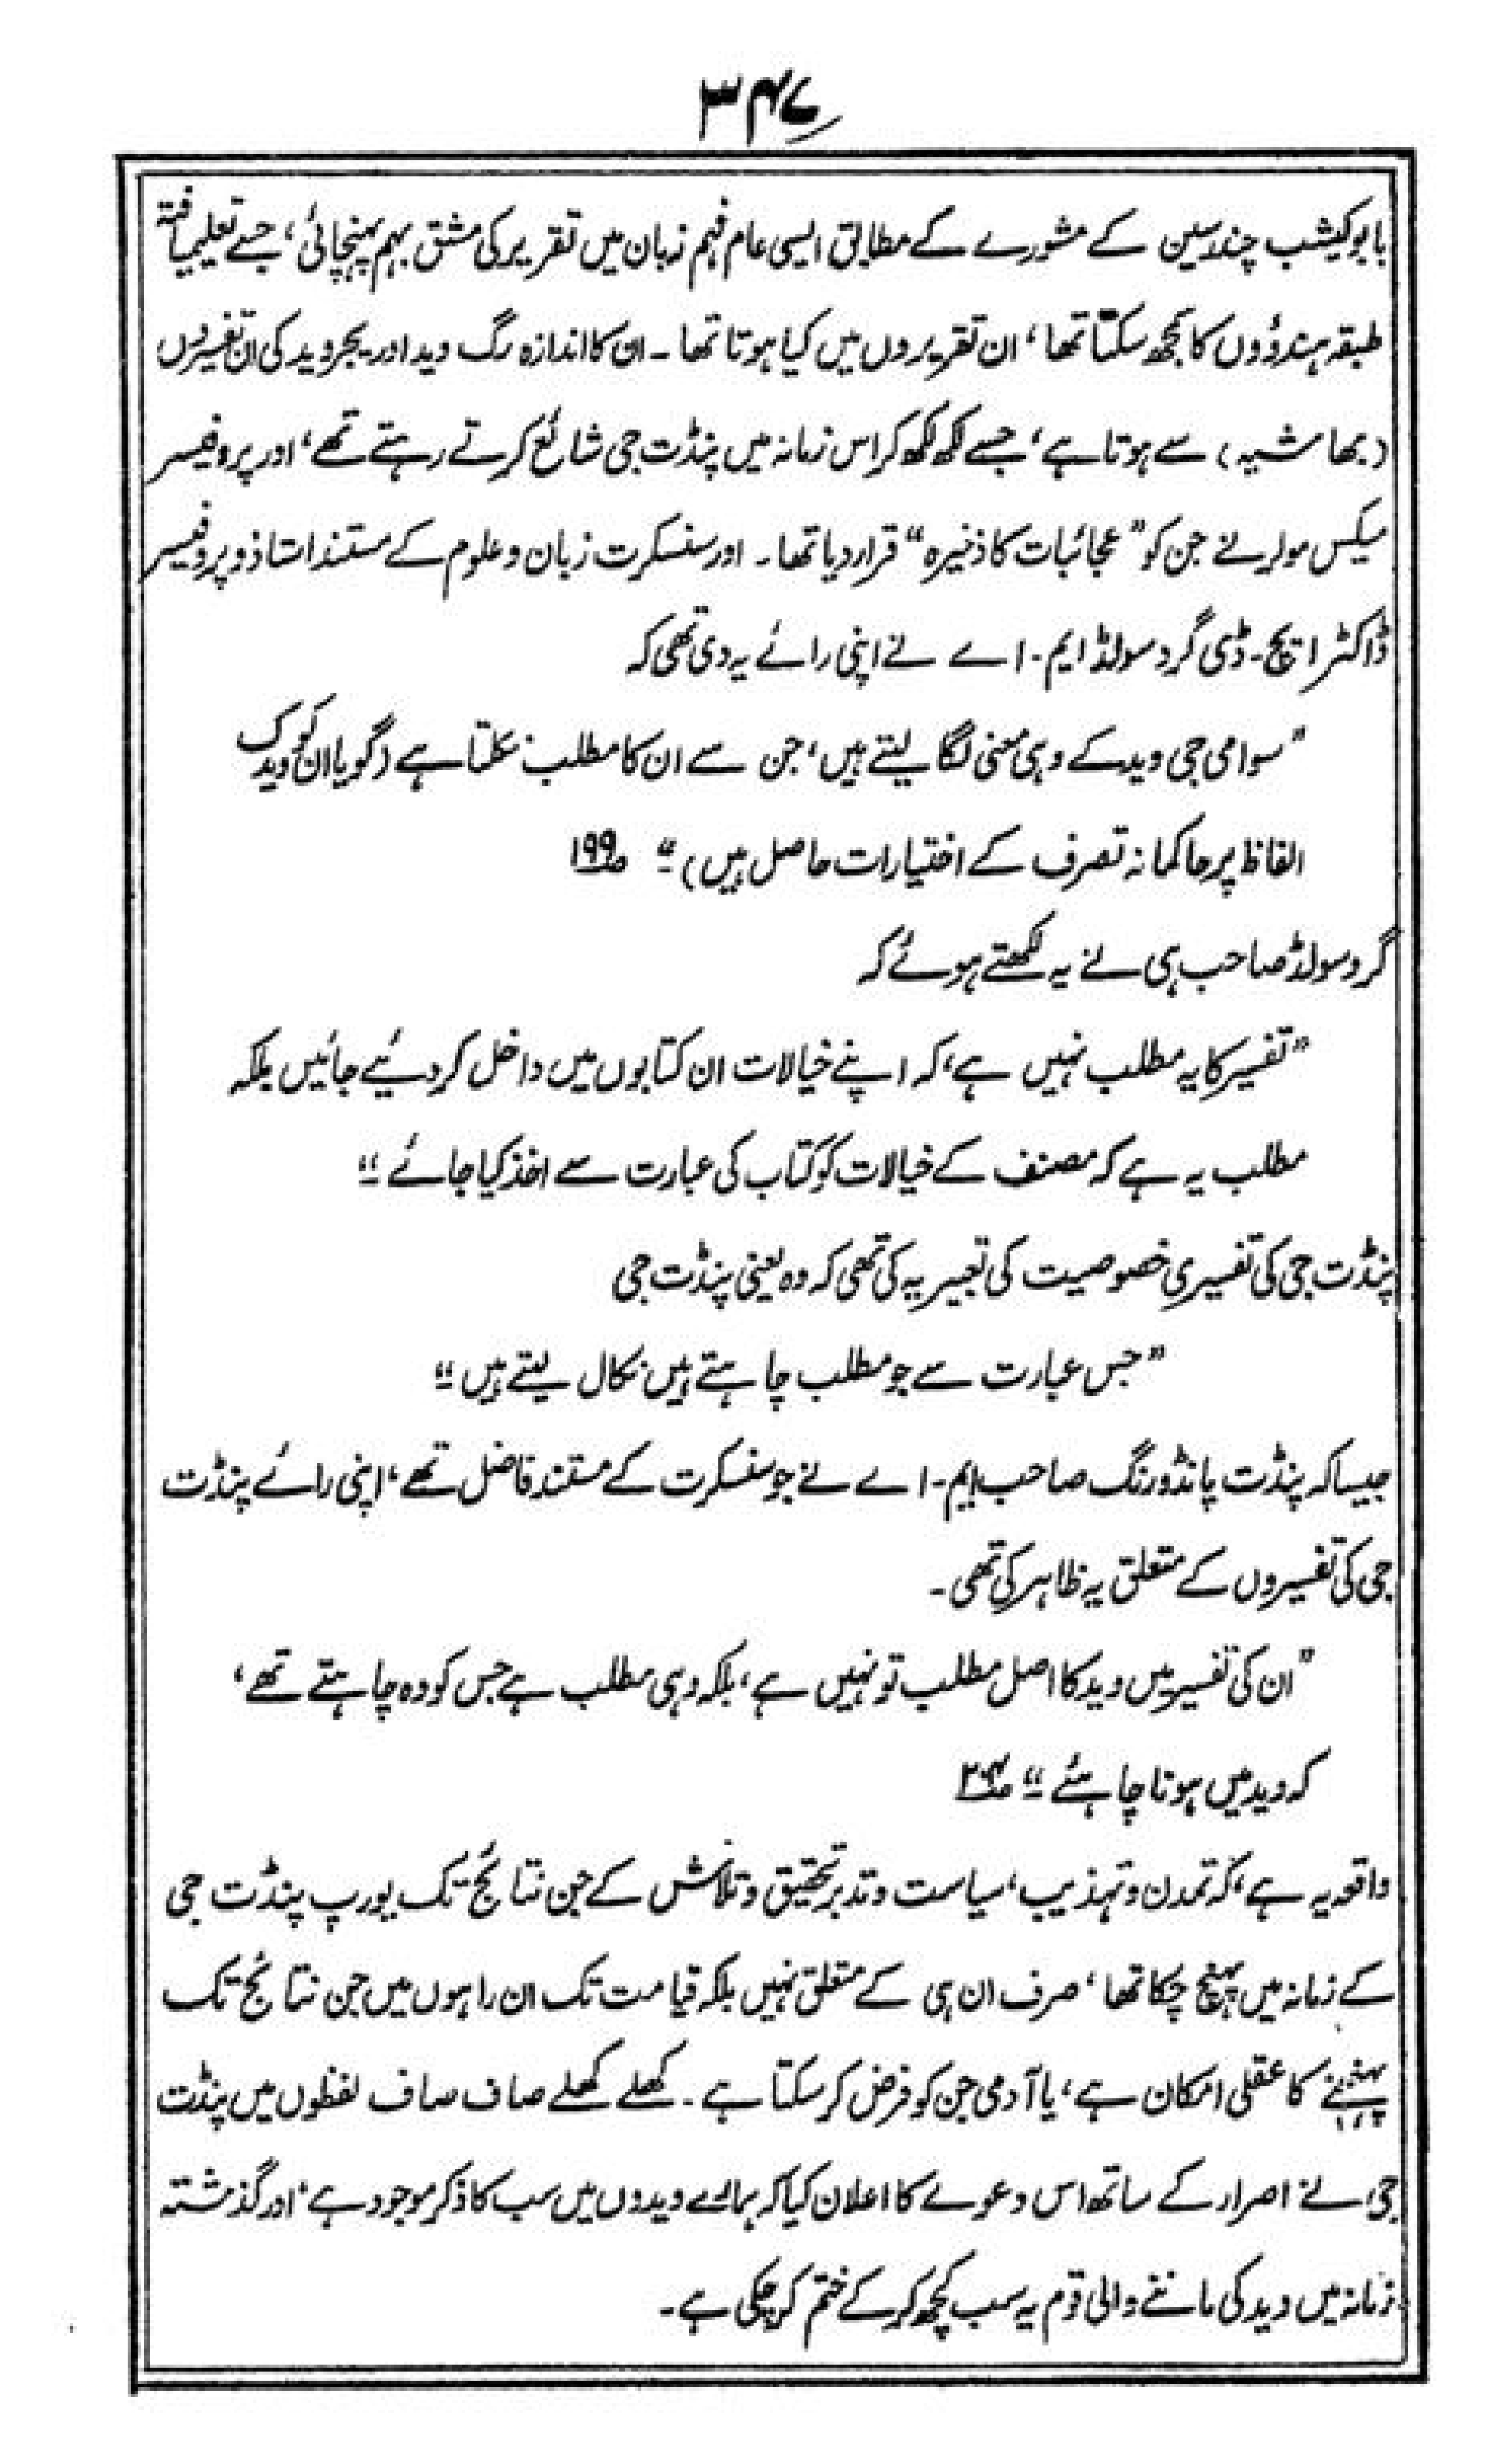 ۳۴۷
بابو کیشب چندرسین کے مشورے کے مطابق ایسی عام فہم زبان میں تقریر کی مشق بہم پہنچائی، جسے تعلیم یافتہ
طبقہ ہندوؤں کا سمجھ سکتا تھا، ان تقریروں میں کیا ہوتا تھا۔ ان کا اندازہ رگ وید اور یجروید کی ان تفسیروں
(بھاشیہ) سے ہوتا ہے، جسے لکھ لکھ کر اس زمانہ میں پنڈت جی شائع کرتے رہتے تھے، اور پروفیسر
میکس مولر نے جن کو "عجائبات کا ذخیرہ" قرار دیا تھا۔ اور سنسکرت زبان و علوم کے مستند استاذ و پروفیسر
ڈاکٹر ایچ۔ ڈی گردسولڈ ایم۔ اے نے اپنی رائے یہ دی تھی کہ
"سوامی جی وید کے وہی معنی لگا لیتے ہیں، جن سے ان کا مطلب نکلتا ہے (گویا ان کو وید کے
الفاظ پر حاکمانہ تصرف کے اختیارات حاصل ہیں)" ص۱۹۹
گردسولڈ صاحب ہی نے یہ لکھتے ہوئے کہ
"تفسیر کا یہ مطلب نہیں ہے، کہ اپنے خیالات ان کتابوں میں داخل کر دئیے جائیں بلکہ
مطلب یہ ہے کہ مصنف کے خیالات کو کتاب کی عبارت سے اخذ کیا جائے"
پنڈت جی کی تفسیری خصوصیت کی تعبیر یہ کی تھی کہ وہ یعنی پنڈت جی
"جس عبارت سے جو مطلب چاہتے ہیں نکال لیتے ہیں"
جیسا کہ پنڈت پانڈورنگ صاحب ایم۔ اے نے جو سنسکرت کے مستند فاضل تھے، اپنی رائے پنڈت
جی کی تفسیروں کے متعلق یہ ظاہر کی تھی۔
"ان کی تفسیر میں وید کا اصل مطلب تو نہیں ہے، بلکہ وہی مطلب ہے جس کو وہ چاہتے تھے،
کہ وید میں ہونا چاہئے"
واقعہ یہ ہے، کہ تمدن و تہذیب، سیاست و تدبر تحقیق و تلاش کے جن نتائج تک یورپ پنڈت جی
کے زمانہ میں پہنچ چکا تھا، صرف ان ہی کے متعلق نہیں بلکہ قیامت تک ان راہوں میں جن نتائج تک
پہنچنے کا عقلی امکان ہے، یا آدمی جن کو فرض کر سکتا ہے۔ کھلے کھلے صاف صاف لفظوں میں پنڈت
جی نے اصرار کے ساتھ اس دعوے کا اعلان کیا کہ ہمارے ویدوں میں سب کا ذکر موجود ہے، اور گذشتہ
زمانہ میں وید کی ماننے والی قوم یہ سب کچھ کر کے ختم کر چکی ہے۔